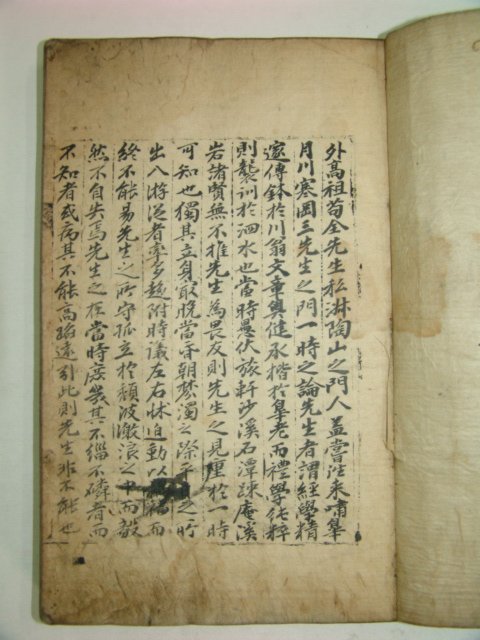 外高祖苟全先生私淋陶山之門人盖嘗往来嘯皐
月川寒岡三先生之門一時之論先生者謂經學精
邃傳鉢於川翁文章典健承楷於皐老而禮學純粹
則襲訓於泗水也當時愚伏旅軒沙溪石潭踈庵溪
岩諸賢無不推先生為畏友則先生之見重於一時
可知也獨其立身寂晚當昏朝棼濁之際乎 之所
出入將泛者率多趍附時議左右怵迫動以 福而
終不能易先生之所守孤立於頹波澉浪之中而毅
然不自失焉先生之在當時庶幾其不緇不磷者而
不知者或病其不能高蹈遠引此則先生非不能也